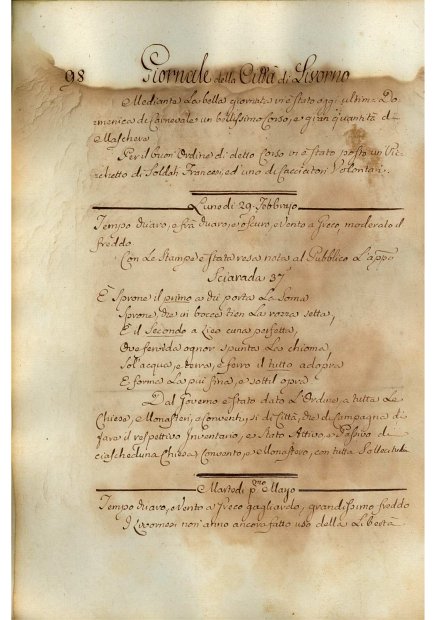 98 Giornale della Città di Livorno
Mediante La bella giornata vi è stato oggi ultima Do-
menica di Carnevale un bellissimo Corso, e gran quantità di
Maschere
Per il buon Ordine di detto Corso vi è stato posto un Pic-
chetto di Soldati Francesi, ed uno di Cacciatori Volontari.
Lunedì 29. Febbrajo
Tempo vario, e frà vario, e oscuro, e vento a Greco moderato il
freddo
Con Le Stampe è stata resa nota al Pubblico L'app.
Sciarada 37.
È Sprone il primo a chi porta La Soma
Sprone, che in bocca tien La rozza setta,
È il Secondo a Lieo cuna perfetta,
Ove fervida ognor spunta Lea chioma,
Sol'acqua, e terra, e ferro il tutto adopra
E forma La più fina, e sottil opra
Dal Governo è stato dato L'Ordine, a tutte Le
Chiese, e Monasteri, e Conventi, sì di Città, che di Campagna di
fare il respettivo Inventario, e Stato Attivo, e Passivo di
ciascheduna Chiesa Convento, e Monastero, con tutta Sollecitudine
Martedì p.mo Marzo
Tempo vario, e vento a Greco gagliardo, grandissimo freddo
I Livornesi non anno ancora fatto uso della Libertà